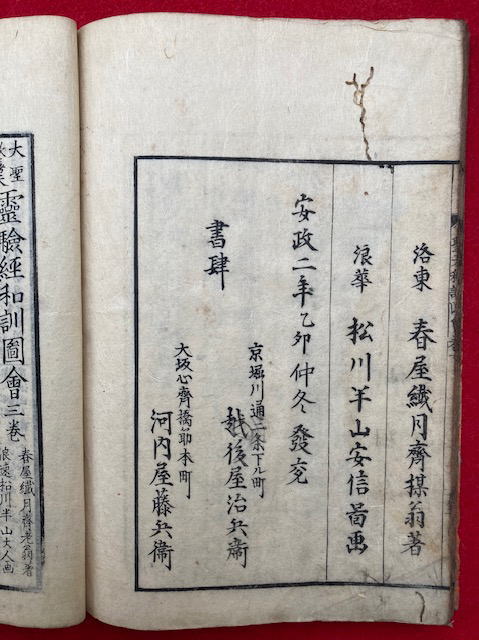 洛東　春屋纖月齊楳翁著
浪華　松川半山安信啚画
安政二年乙卯仲冬發兌
書肆
京堀川通二条下ル町
越後屋治兵衛
大坂心齊橋筋本町
河内屋藤兵衛
大聖
靈驗經和訓圖會三巻
春屋纖月齊老翁著
浪速松川半山大人画